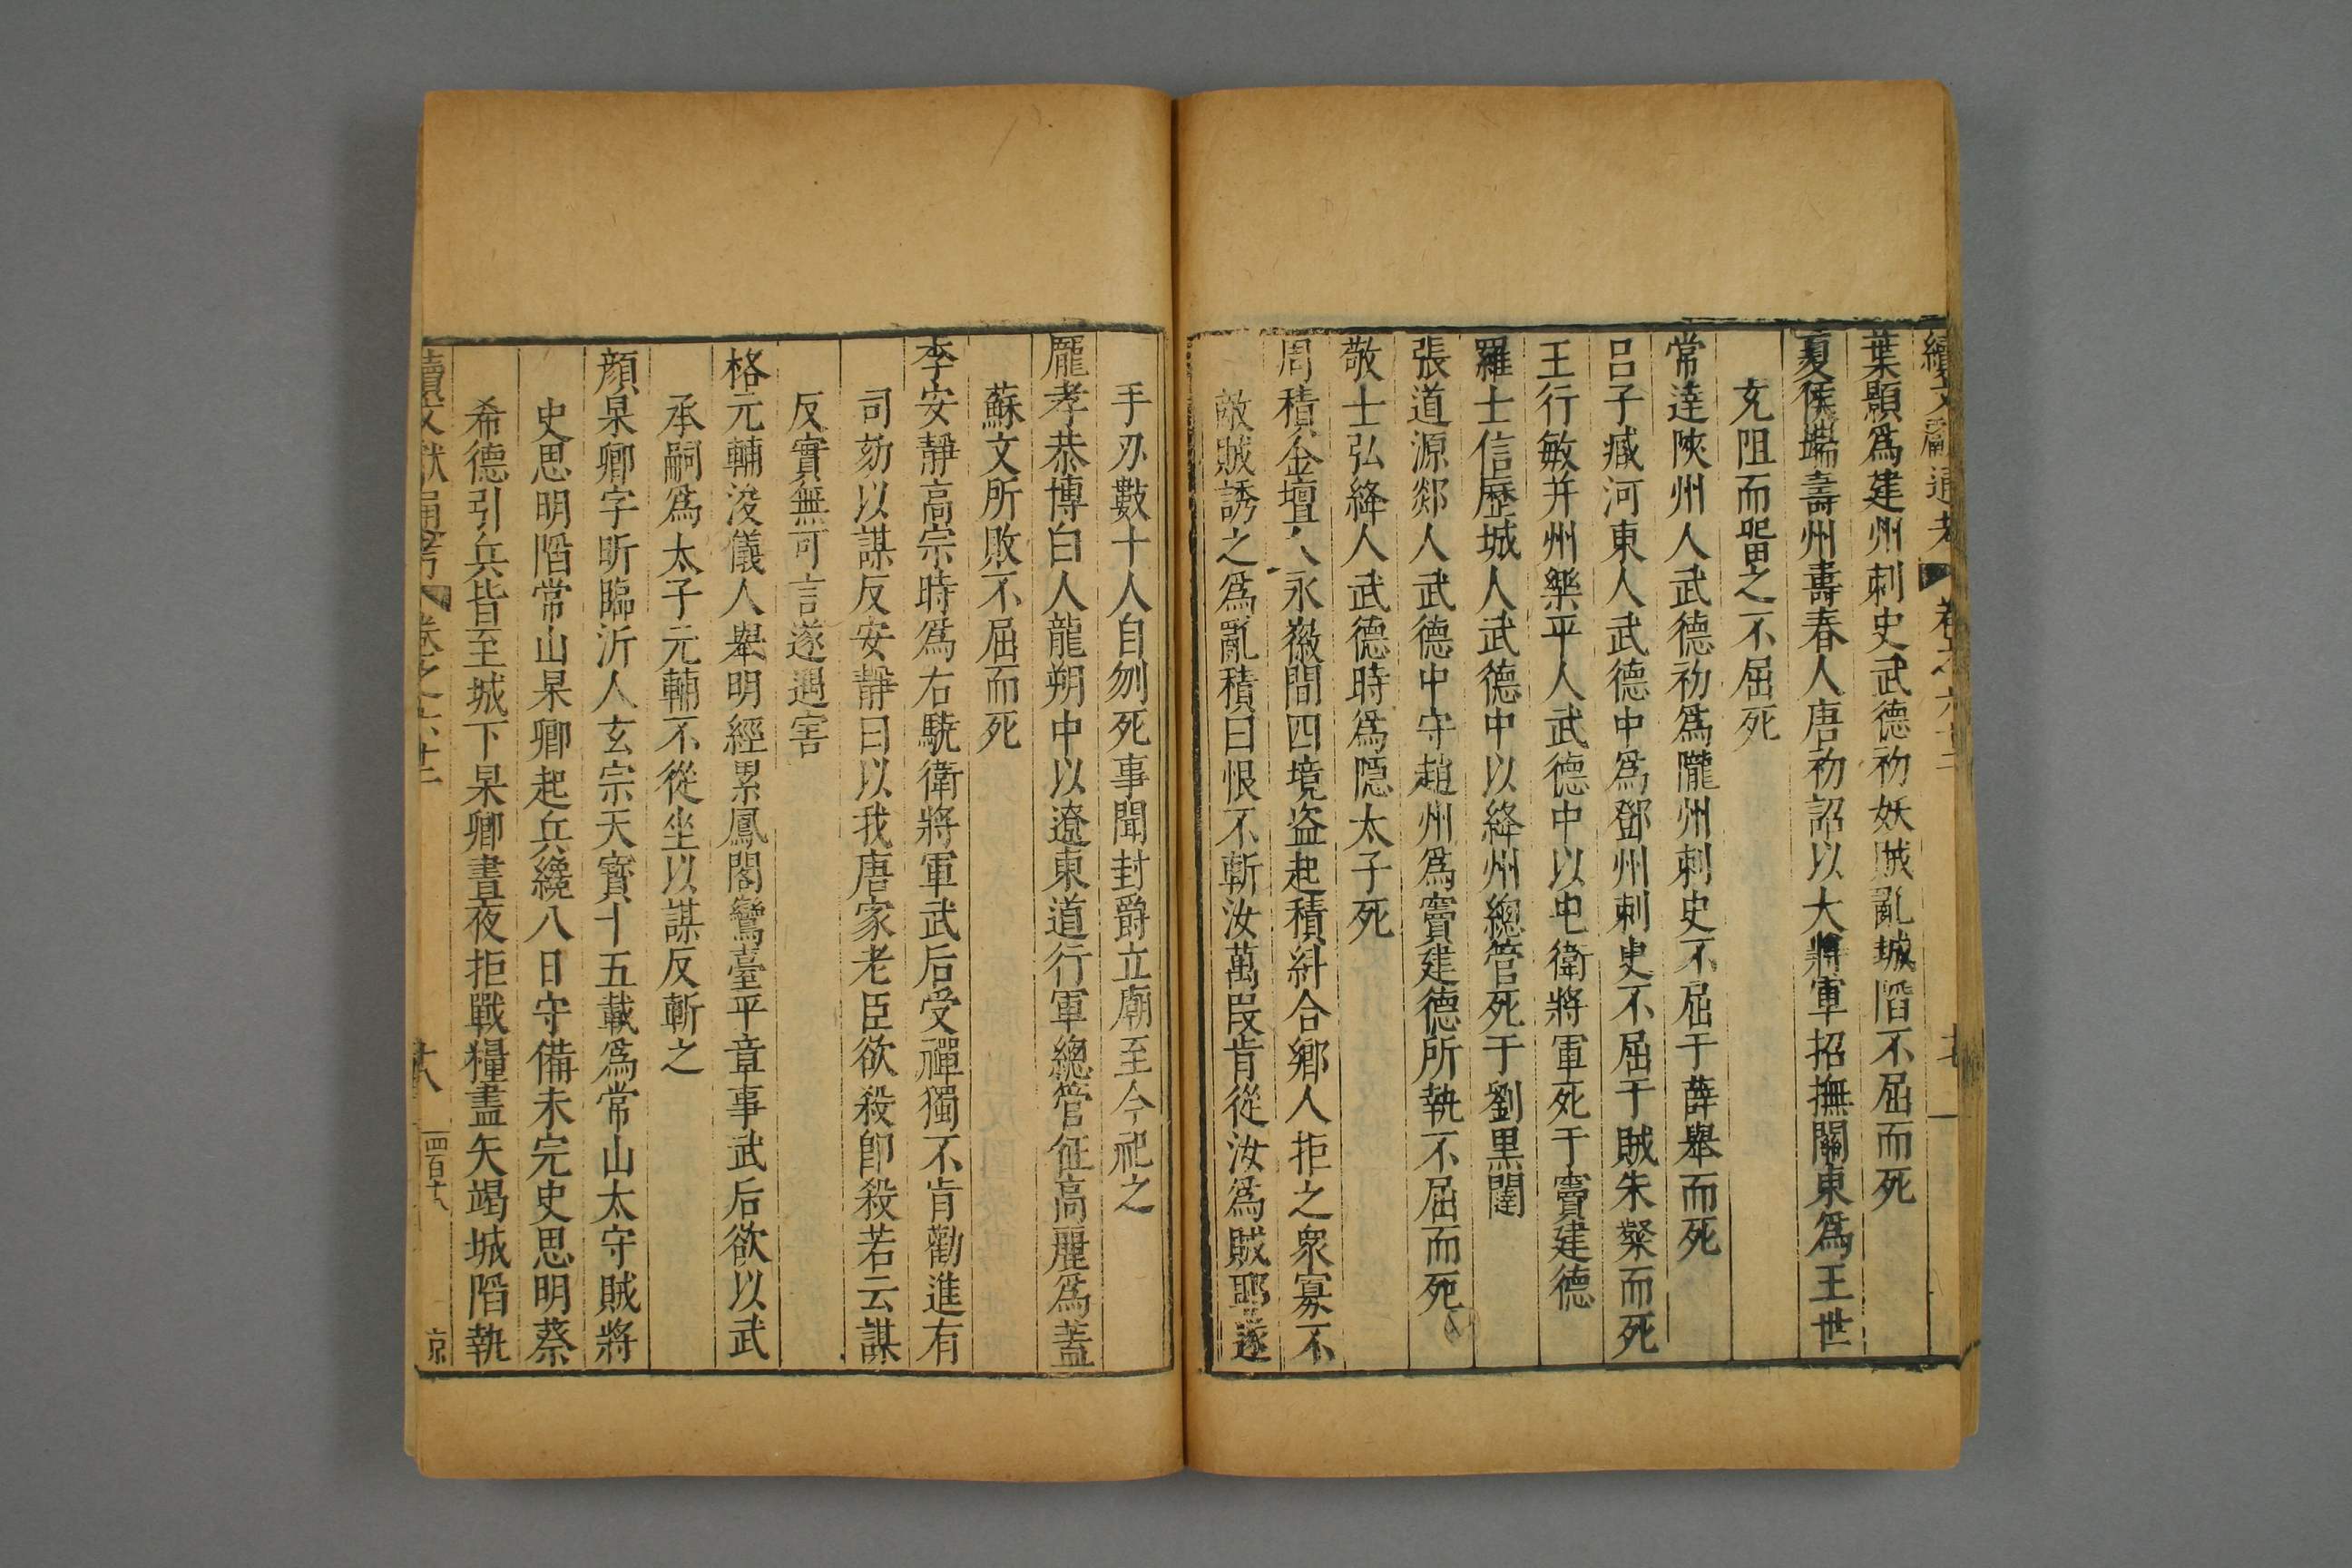 續文獻通考 卷之六十二
葉顥爲建州刺史武德初妖賊亂城陷不屈而死
夏侯端壽州壽春人唐初詔以大將軍招撫關東爲王世
充阻而詈之不屈死
常達陝州人武德初爲隴州刺史不屈于薛舉而死
呂子臧河東人武德中爲鄧州刺吏不屈于賊朱粲而死
王行敏并州樂平人武德中以屯衛將軍死于竇建德
羅士信歷城人武德中以絳州總管死于劉黒闥
張道源郯人武德中守趙州爲竇建德所執不屈而死
敬士弘絳人武德時爲隠太子死
周積金壇人永徽間四境盗起積糾合鄉人拒之衆寡不
敵賊誘之爲亂積曰恨不斬汝萬叚肯從汝爲賊耶遂
手刃數十人自刎死事聞封爵立廟至今祀之
龎孝恭博白人龍朔中以遼東道行軍總管征高麗爲蓋
蘇文所敗不屈而死
李安靜高宗時爲右驍衛將軍武后受禪獨不肯勸進有
司劾以謀反安靜曰以我唐家老臣欲殺卽殺若云謀
反實無可言遂遇害
格元輔浚儀人舉明經累鳳閣鸞臺平章事武后欲以武
承嗣爲太子元輔不從坐以謀反斬之
顏杲卿字昕臨沂人玄宗天寳十五載爲常山太守賊將
史思明陷常山杲卿起兵纔八日守備未完史思明蔡
希德引兵皆至城下杲卿晝夜拒戰糧盡矢竭城陷執
續文獻通考 卷之六十二 十八 四百十八 京